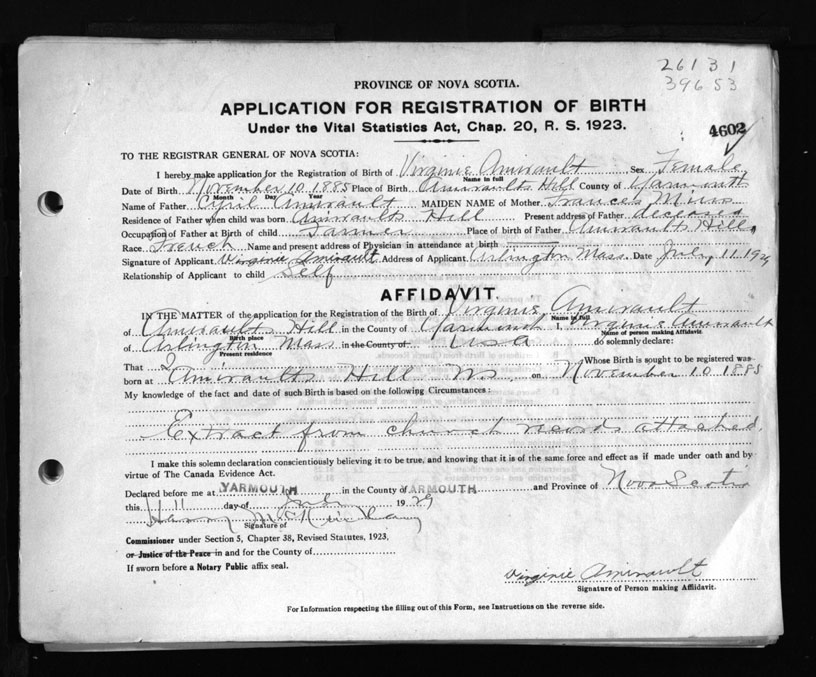 26131
39653
PROVINCE OF NOVA SCOTIA.
APPLICATION FOR REGISTRATION OF BIRTH
Under the Vital Statistics Act, Chap. 20, R. S. 1923.
4602
TO THE REGISTRAR GENERAL OF NOVA SCOTIA:
I hereby make application for the Registration of Birth of Virginie Amirault Sex Female
Name in full
Date of Birth November 10 1885 Place of Birth Amiraults Hill County of Yarmouth
Month Day Year
Name of Father Cyril Amirault MAIDEN NAME of Mother Frances Muis
Residence of Father when child was born Amiraults Hill Present address of Father deceased
Occupation of Father at Birth of child Farmer Place of birth of Father Amiraults Hill
Race French Name and present address of Physician in attendance at birth
Signature of Applicant Virginie Amirault Address of Applicant Arlington Mass. Date July 11 1929
Relationship of Applicant to child Self
AFFIDAVIT.
IN THE MATTER of the application for the Registration of the Birth of Virginie Amirault
Name in full
of Amiraults Hill in the County of Yarmouth I, Virginie Amirault
Birth place Name of person making Affidavit
of Arlington Mass in the County of USA do solemnly declare:
Present residence
That I Whose Birth is sought to be registered was
born at Amiraults Hill NS. on November 10 1885
My knowledge of the fact and date of such Birth is based on the following Circumstances:
Extract from church records attached.
I make this solemn declaration conscientiously believing it to be true, and knowing that it is of the same force and effect as if made under oath and by
virtue of The Canada Evidence Act.
Declared before me at YARMOUTH in the County of YARMOUTH and Province of Nova Scotia
this 11 day of July 1929
Signature of
Commissioner under Section 5, Chapter 38, Revised Statutes, 1923,
or Justice of the Peace in and for the County of
If sworn before a Notary Public affix seal.
Virginie Amirault
Signature of Person making Affidavit.
For Information respecting the filling out of this Form, see Instructions on the reverse side.